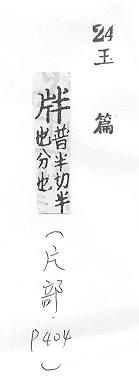 24 玉篇
牉
普半切半
也分也
(片部.P404)